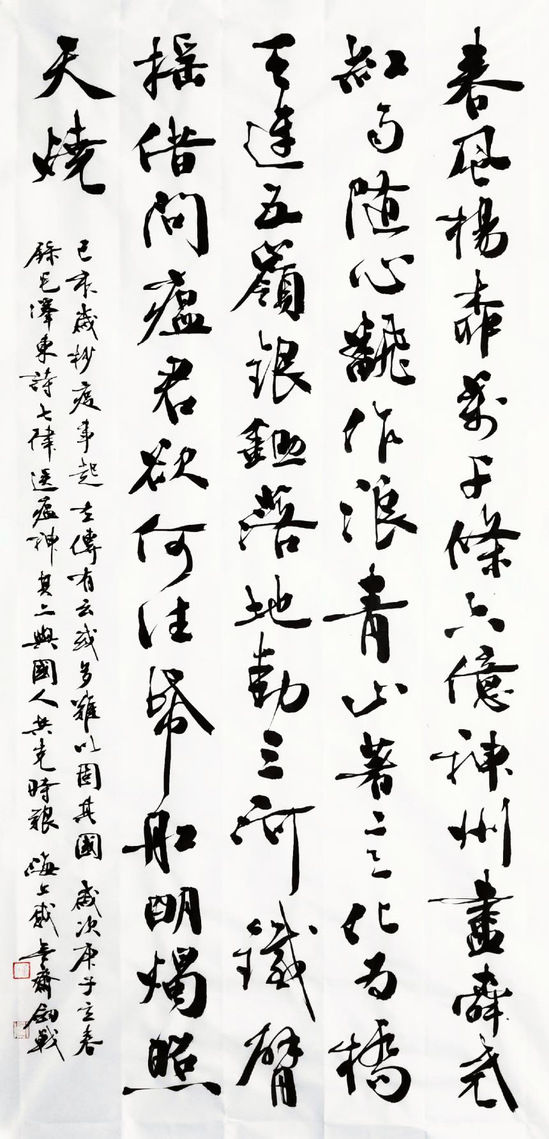 春風楊柳萬千條六億神州盡舜堯
紅雨随心飜作浪青山著意化為橋
天連五嶺銀鋤落地動三河鐵臂
摇借問瘟君欲何往紙船明燭照
天燒
己亥歲杪疫事起左傳有云或多難以固其國 歲次庚子立春
錄毛澤東詩七律送瘟神其二與國人共克時艱 海上感無齋